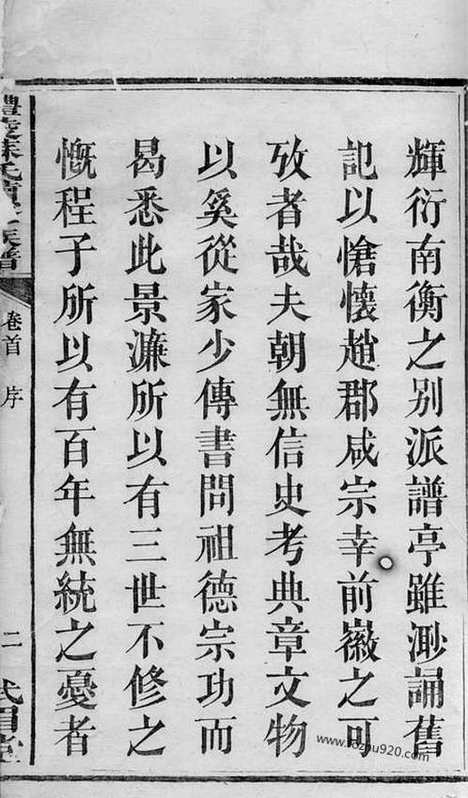 輝衍南衡之別派譜亭雖渺誦舊
記以愴懷趙郡咸宗幸前徽之可
攷者哉夫朝無信史考典章文物
以奚從家少傳書問祖德宗功而
曷悉此景濂所以有三世不修之
慨程子所以有百年無統之憂者
氏族譜
卷首 序
二
www.zozhu920.com